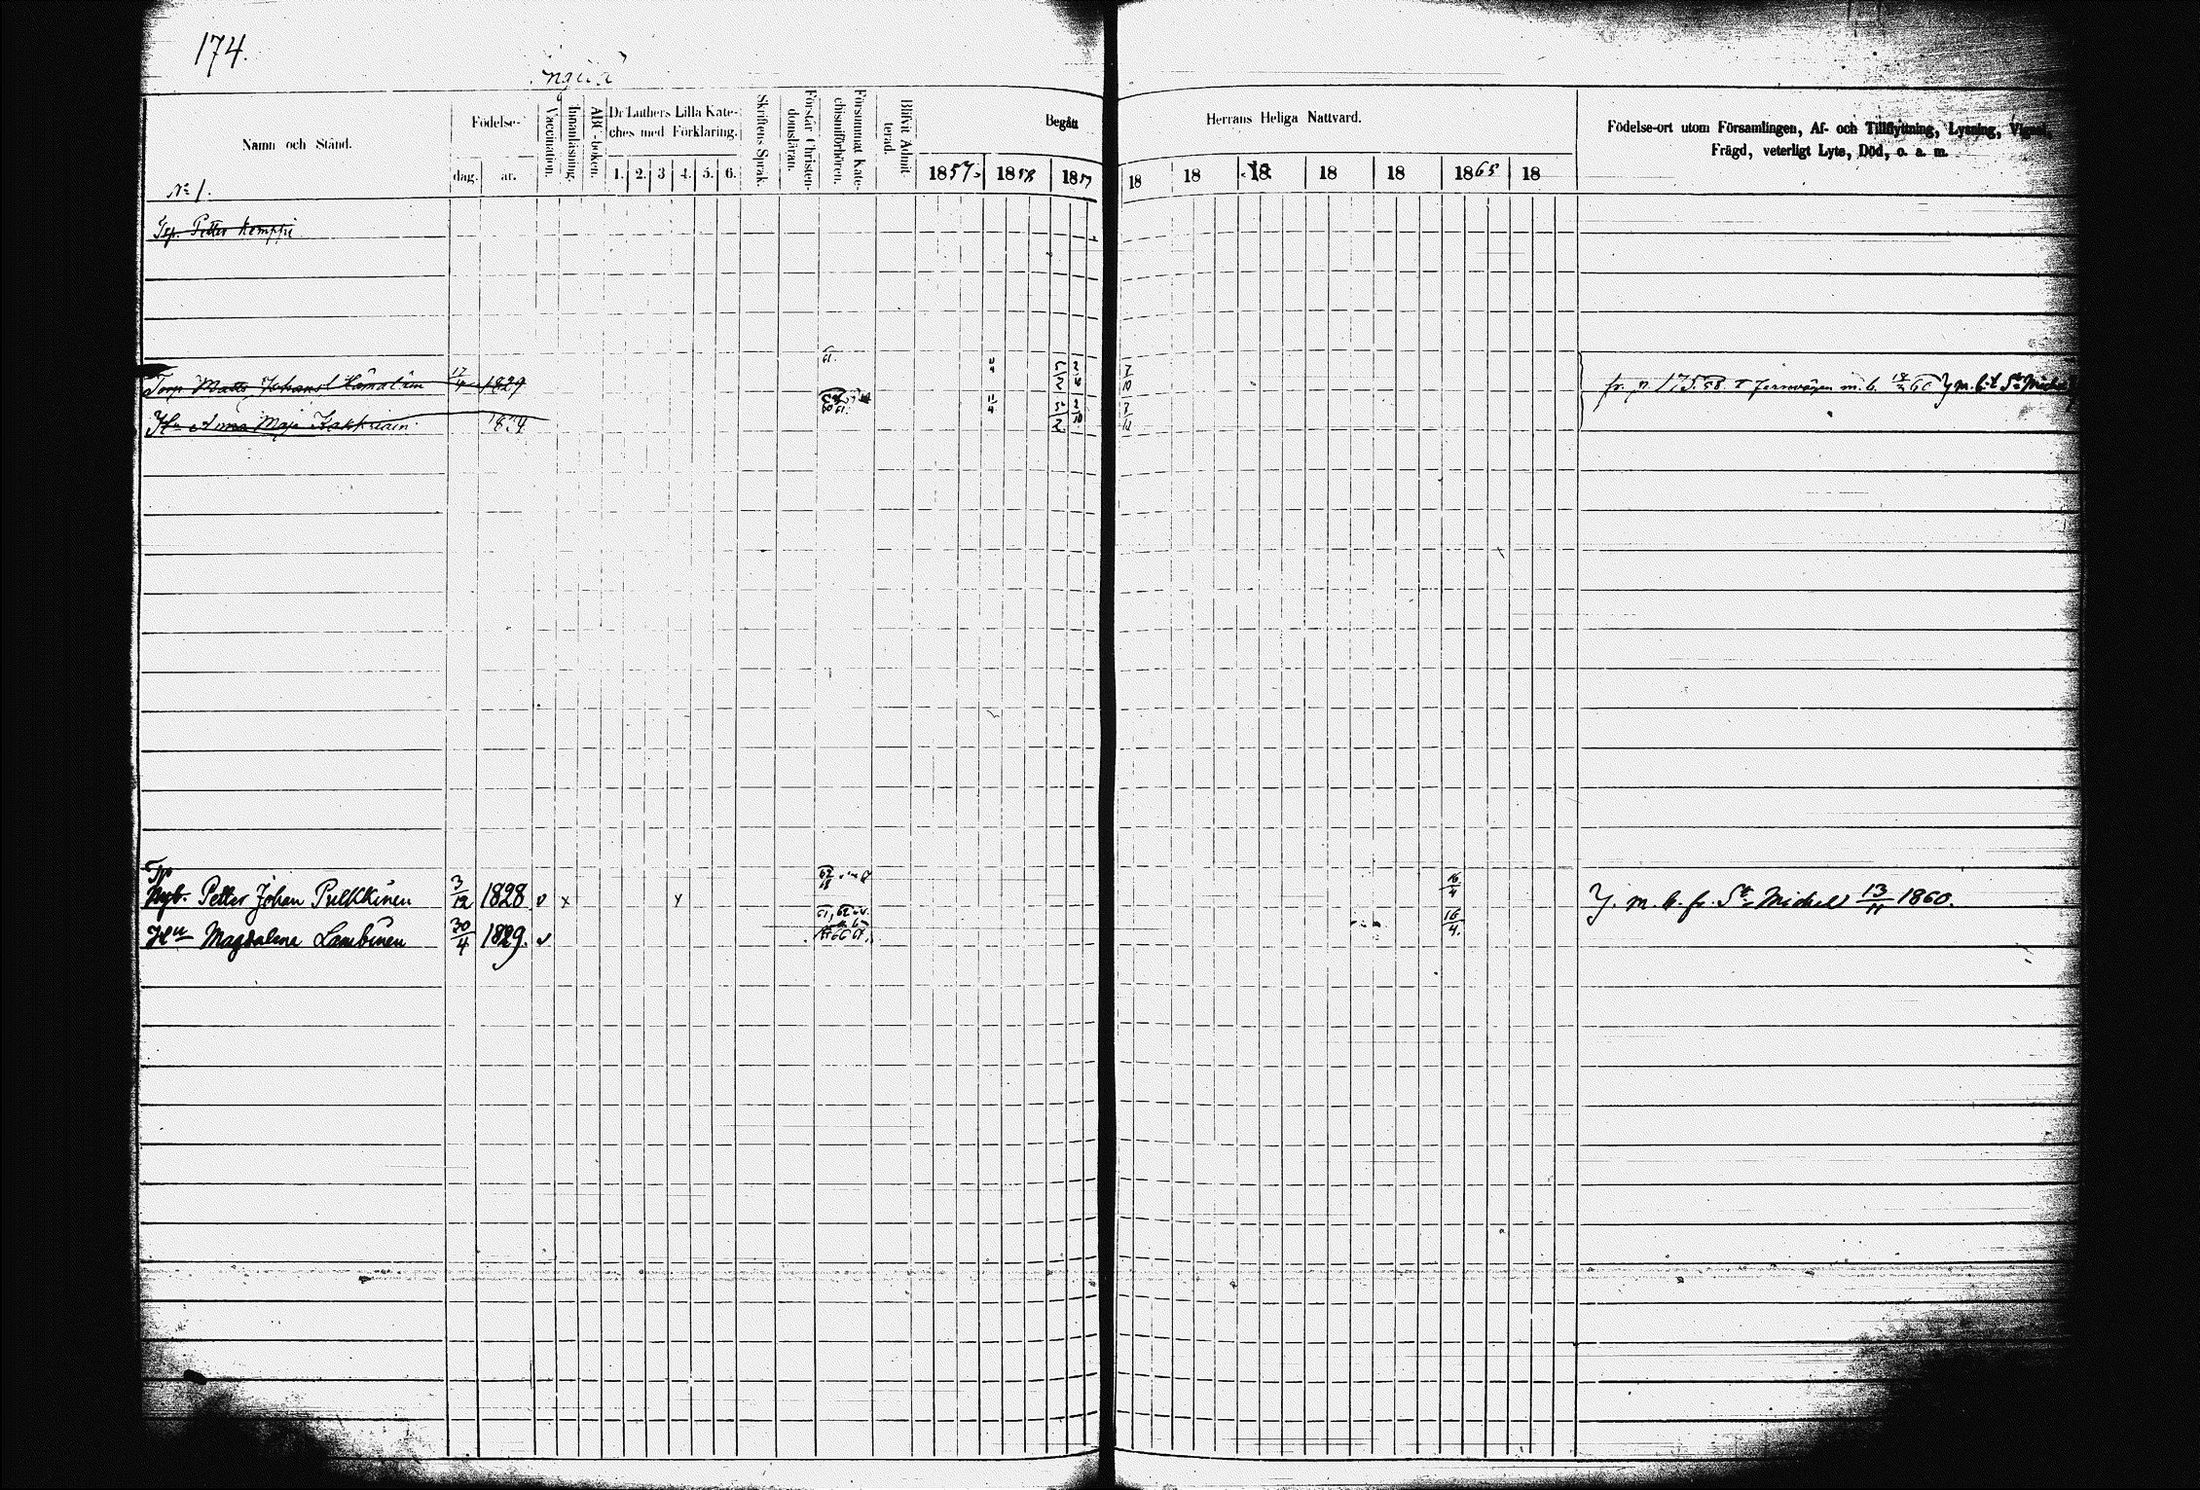 174.
Namn och Stånd.
Födelse-
dag.
år.
Vaccination.
Innanläsning.
ABC-boken.
Dr Luthers Lilla Kate-
ches med Förklaring.
1. 2. 3 4. 5. 6.
Skriftens Språk.
Förstår Christen-
domsläran.
Försummat Kate-
chismiförhören.
Blifvit Admit-
terad.
Begått
Herrans Heliga Nattvard.
1857. 1858 18 18 18 18 18 18 1865 18
Födelse-ort utom Församlingen, Af- och Tillflyttning, Lysning, Vigsel,
Frägd, veterligt Lyte, Död, o. a. m.
No 1.
Petter Kemppi
61.
Torp. Matts Johansl Hämäläin 17 1829
fr. p. 175. 58. m. b. 60 m. b. t. St Michel
Hu Anna Maja
Tp
Petter Johan Pulkkinen 3/12 1828 v x 16/4 m. b. fr. St Michel 13/11 1860.
Hu Magdalena Lambinen 30/4 1829. v 16/4.